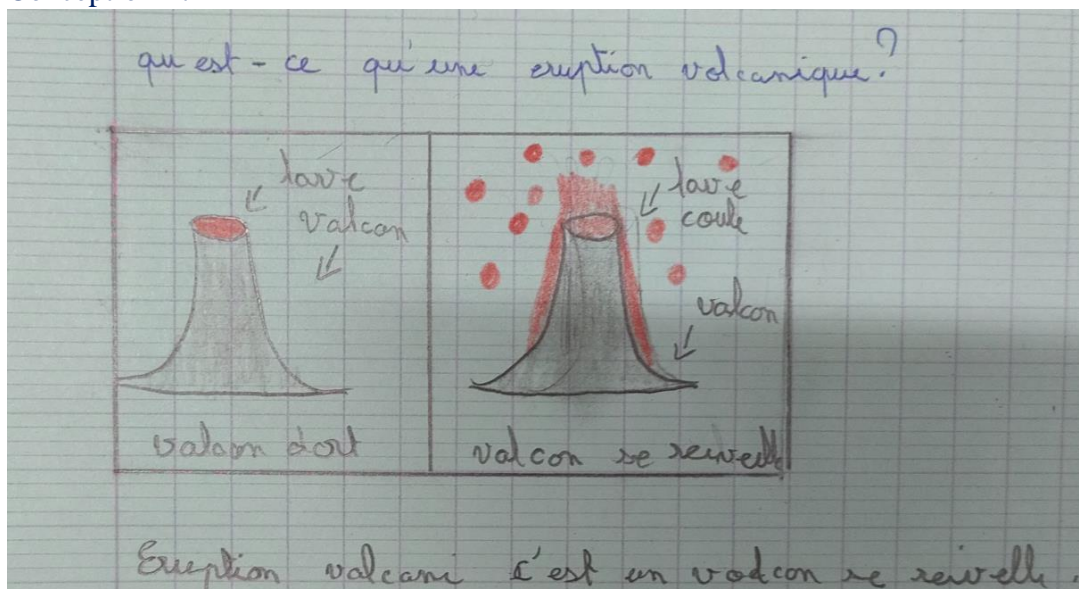 qu est - ce qu'une eruption volcanique ?
lave
valcon
lave
coule
valcon
valcon dort
valcon se reivelle
Eruption valcani c'est un vodcon se reivelle.